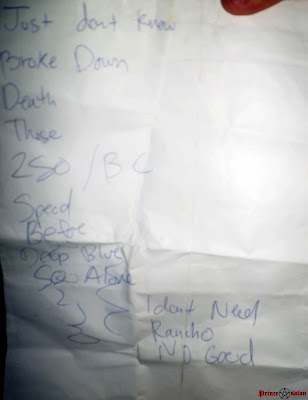 Just dont know
Broke Down
Death
Those
2SO / BC
Speed
Before
Deep Blue
So Alone
2
3
I dont Need
Rancho
No Good
Prince Satan